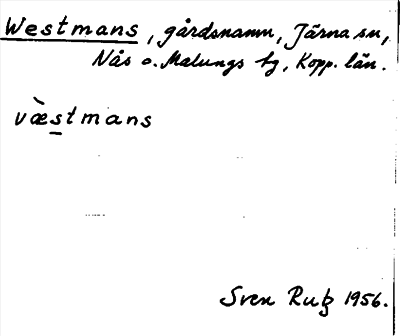 Westmans, gårdsnamn, Järna sn,
Nås o. Malungs tg, Kopp. län.
væ̀s̲tmans
Sven Rutz 1956.